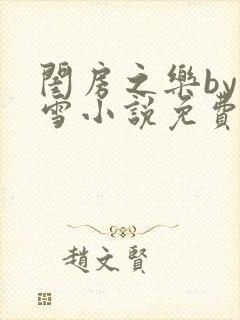 閨房之樂by
雪小說免費
趙文賢